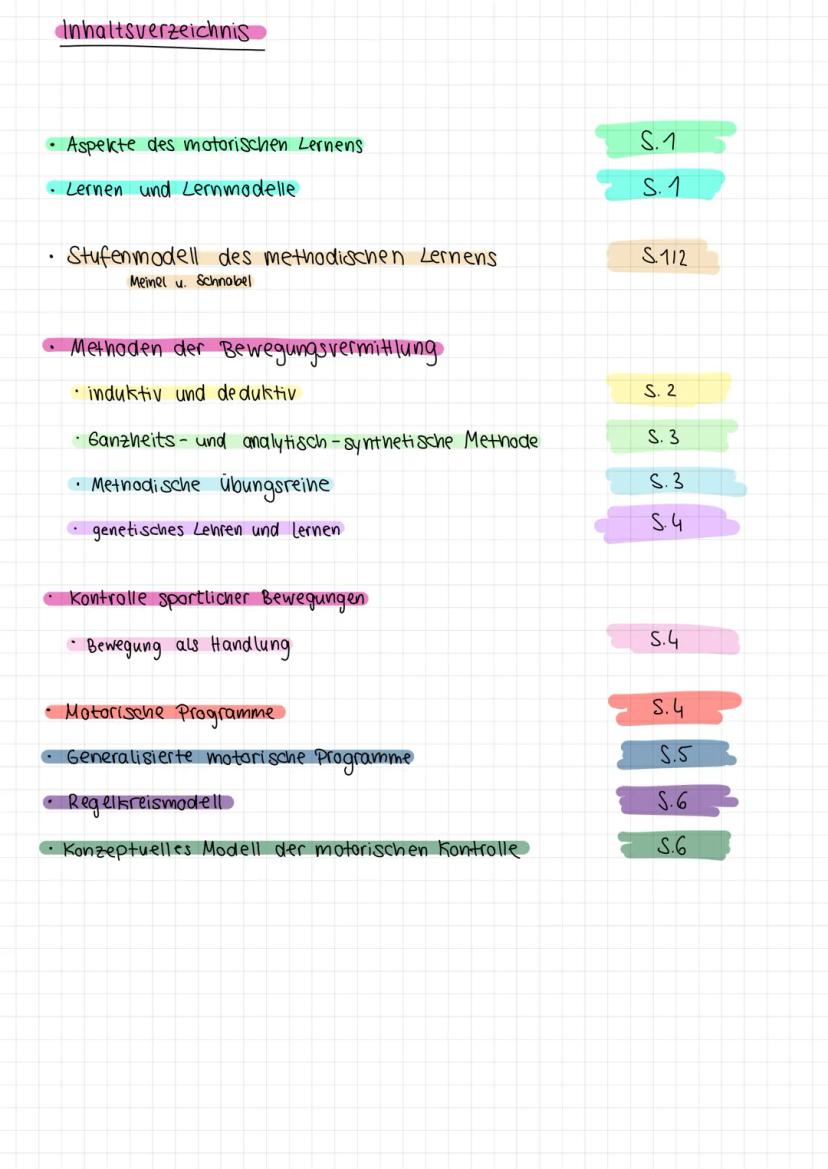 Inhaltsverzeichnis
· Aspekte des motorischen Lernens S.1
· Lernen und Lernmodelle S.1
· Stufenmodell des methodischen Lernens S.1/2
Meinel u. Schnabel
· Methoden der Bewegungsvermittlung
· induktiv und deduktiv S. 2
· Ganzheits- und analytisch-synthetische Methode S. 3
· Methodische Übungsreihe S. 3
· genetisches Lehren und lernen S. 4
· Kontrolle sportlicher Bewegungen
· Bewegung als Handlung S.4
· Motorische Programme S.4
· Generalisierte motorische Programme S.5
· Regelkreismodell S.6
· Konzeptuelles Modell der motorischen Kontrolle S.6